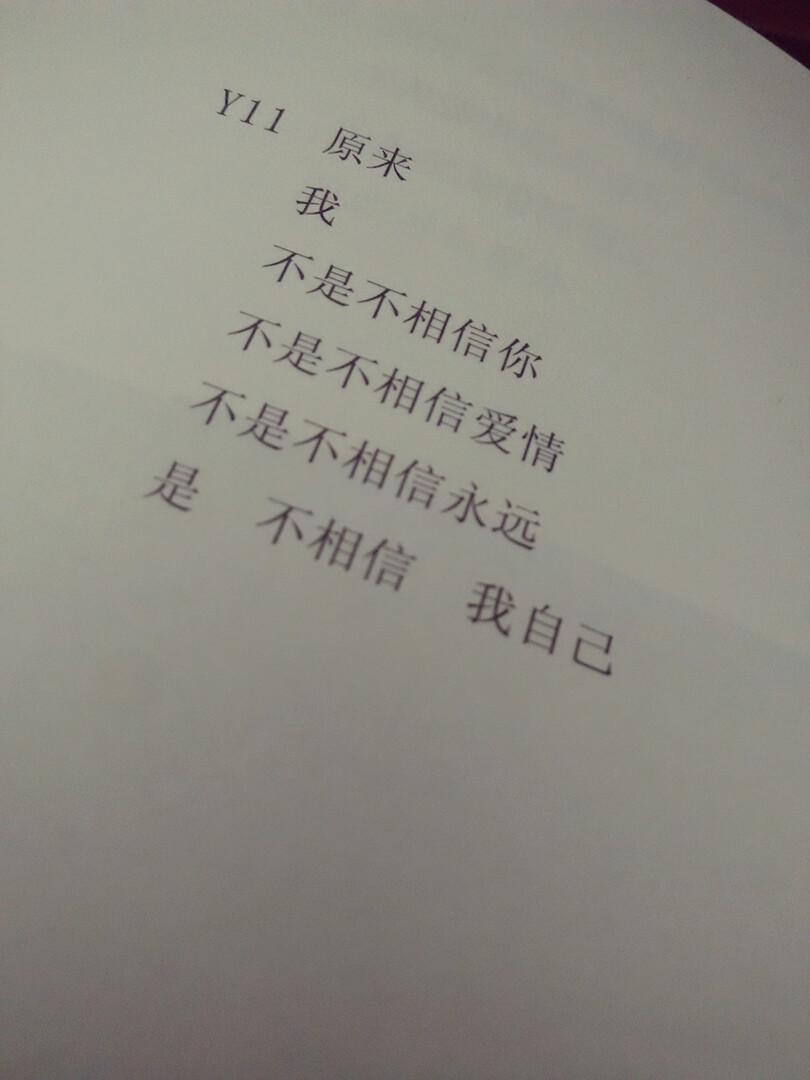 Y11 原来
我
不是不相信你
不是不相信爱情
不是不相信永远
是 不相信 我自己